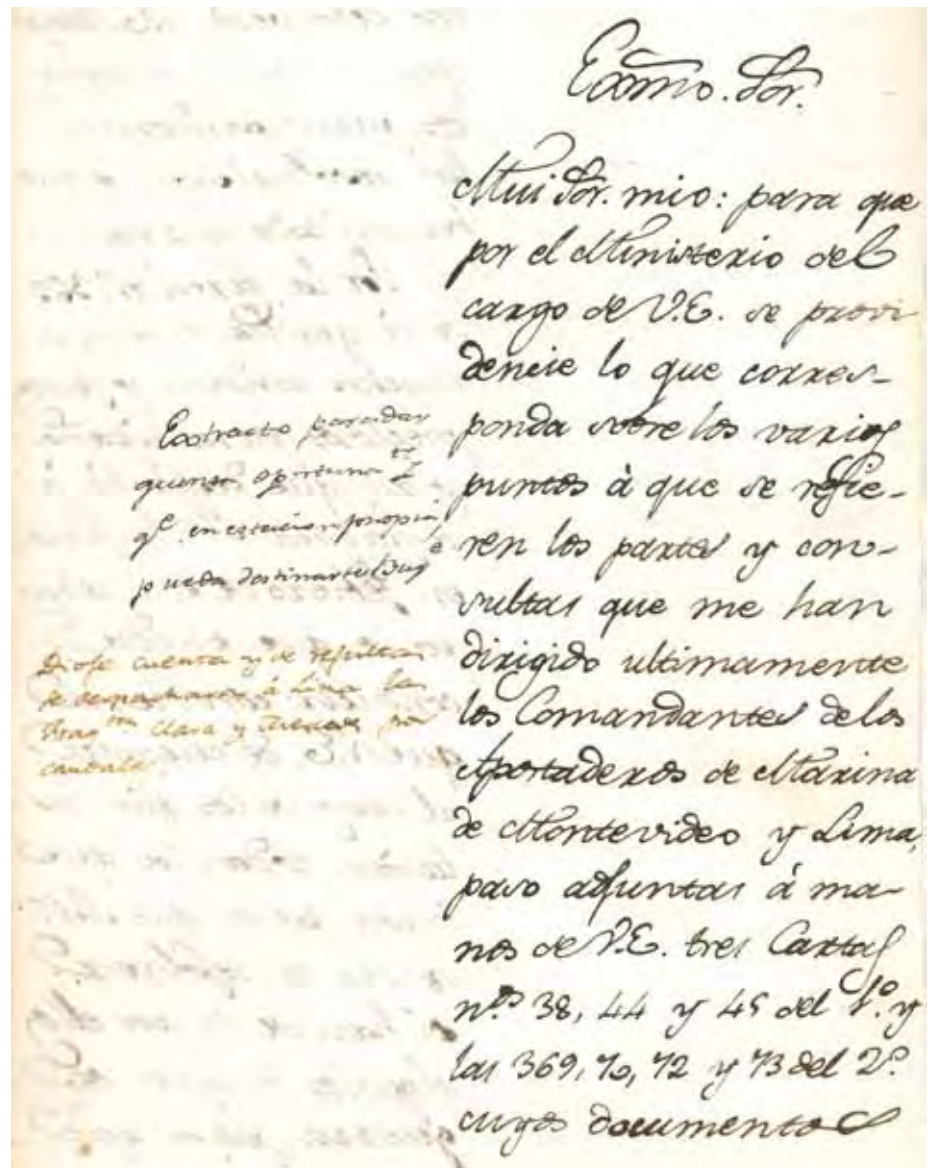 Exmo. Sor.
Mui Sor. mio: para que
por el Ministerio del
cargo de V.E. se provi
dencie lo que corres-
ponda sobre los varios
puntos à que se refie-
ren los partes y con-
sultas que me han
dirigido ultimamente
los Comandantes de los
Apostaderos de Marina
de Montevideo y Lima,
paso adjuntas à ma-
nos de V.E. tres Cartas
n.os 38, 44 y 45 del 1.o y
las 369, 70, 72 y 73 del 2.o
cuyos documentos
Extracto para dar
quenta oportuna te
qe. en estacion propia
pueda destinarse
Diose cuenta y de resultas
se despacharon à Lima las
Frag tas Clara y Mercedes por
caudales